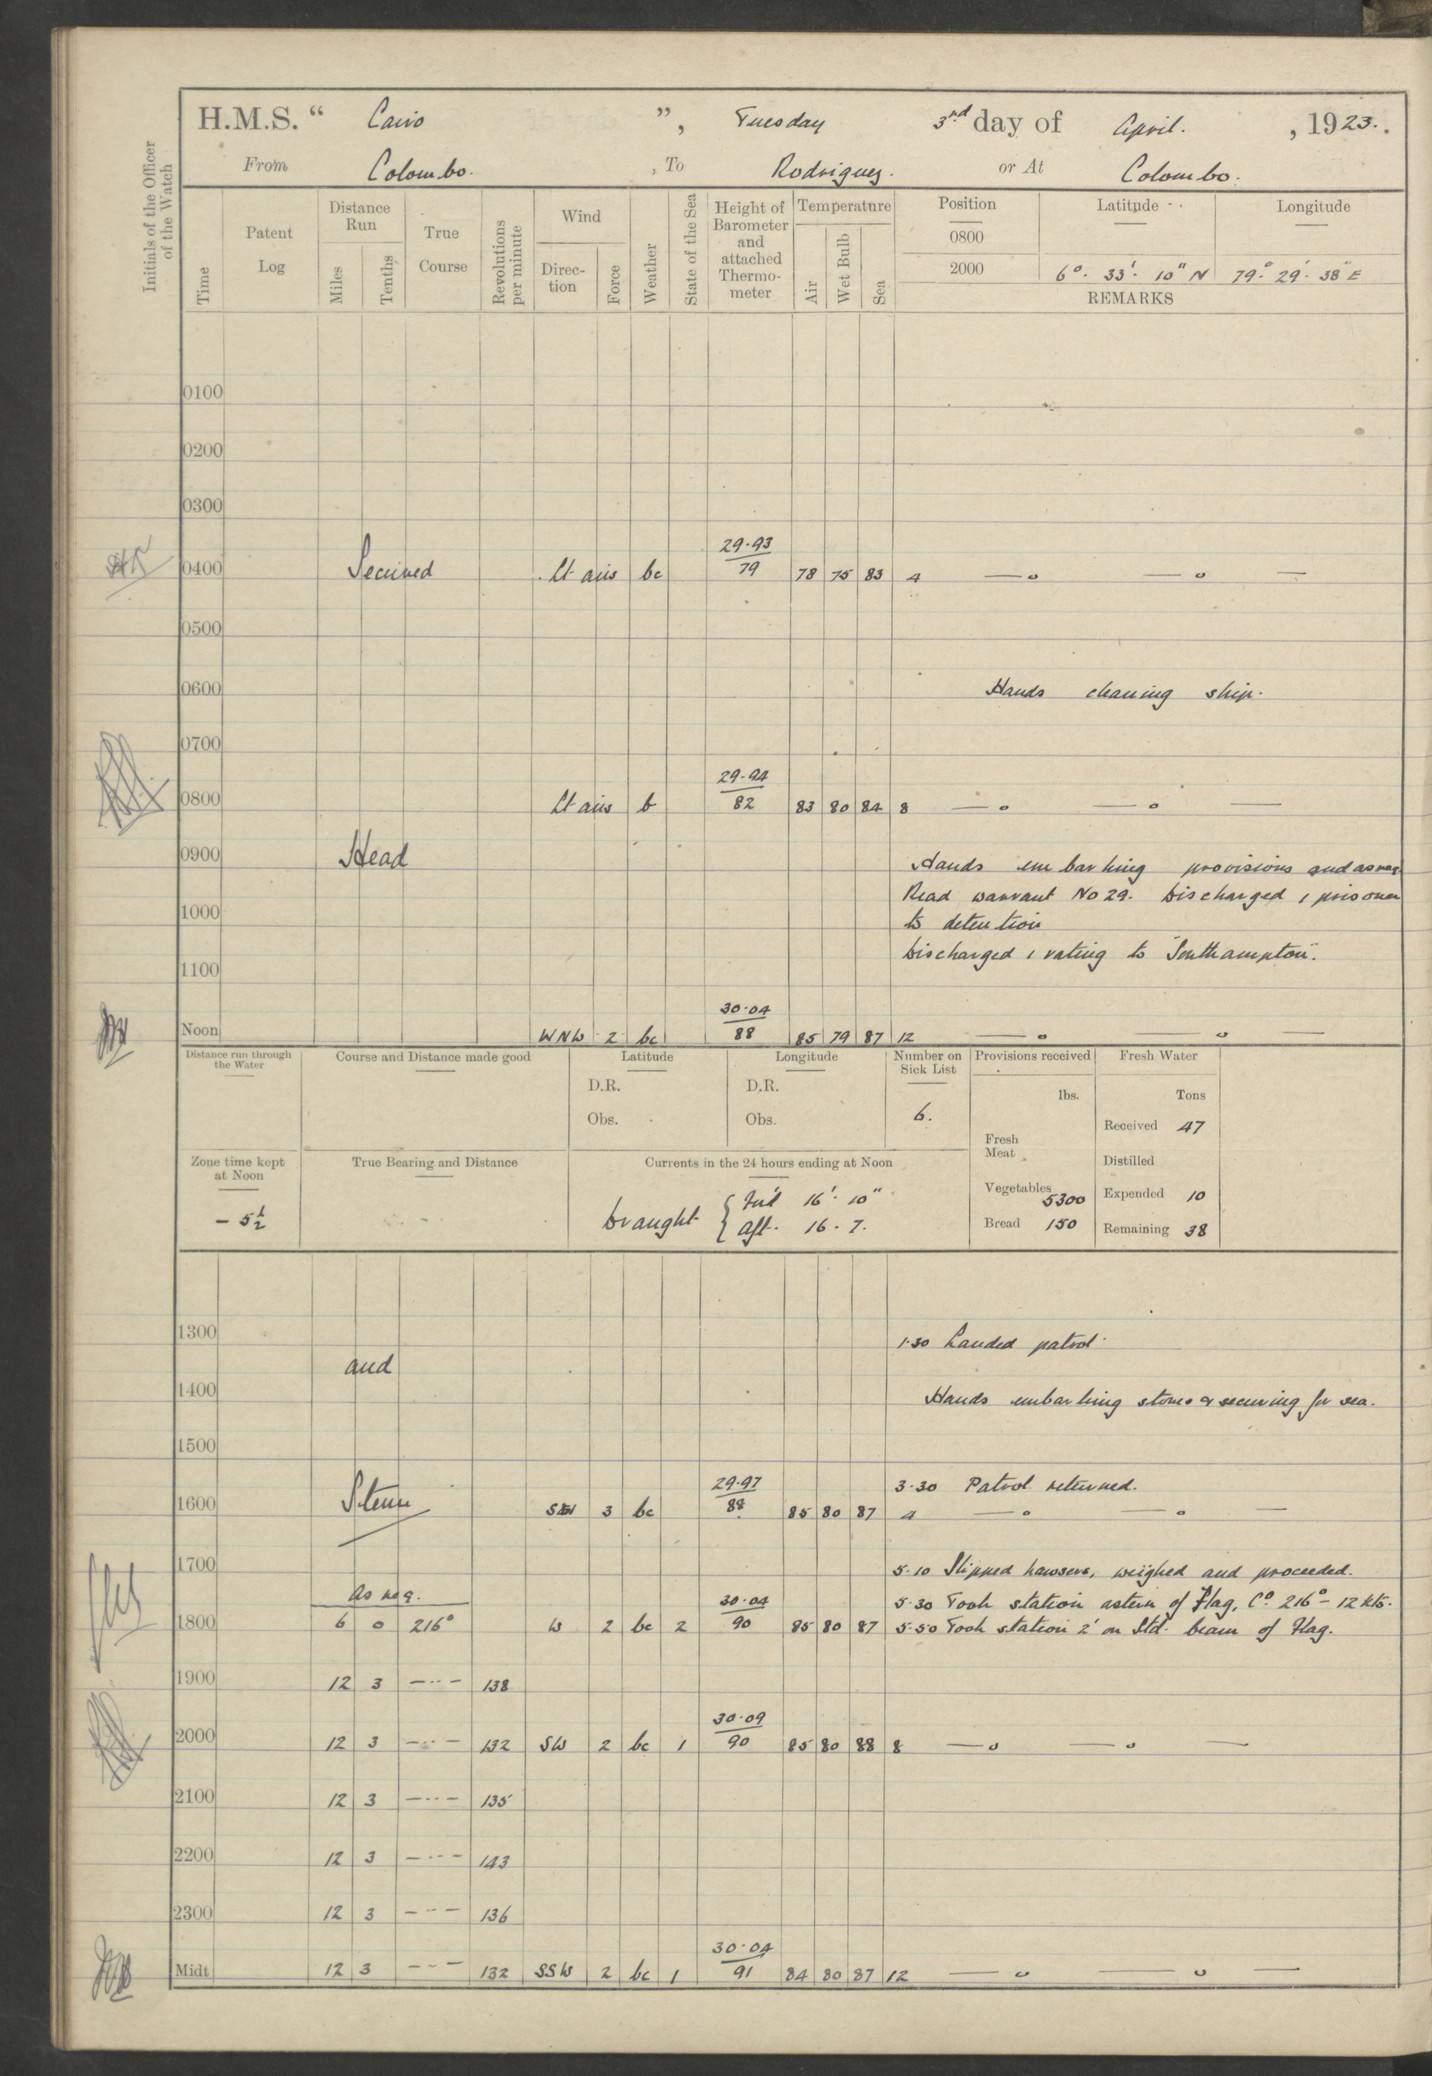 H.M.S. “ Cairo ”, Tuesday 3rd day of April. , 1923.
From Colombo. , To Rodriguez. or At Colombo.
Initials of the Officer of the Watch
Time
Patent Log
Distance Run
Miles
Tenths
True Course
Revolutions per minute
Wind
Direc-tion
Force
Weather
State of the Sea
Height of Barometer and attached Thermo-meter
Temperature
Air
Wet Bulb
Sea
Position Latitude Longitude
0800
2000 6° 33' 10" N 79° 29' 38" E
REMARKS
0100
0200
0300
0400 Secured Lt airs bc 29.93/79 78 75 83 4 — o — o —
0500
0600 Hands cleaning ship.
0700
0800 Lt airs b 29.94/82 83 80 84 8 — o — o —
0900 Head Hands embarking provisions and as req
Read warrant No 29. Discharged 1 prisoner
1000 to detention
Discharged 1 rating to "Southampton".
1100
Noon WNW 2 bc 30.04/88 85 79 87 12 — o — o —
Distance run through the Water
Course and Distance made good
Latitude
D.R.
Obs.
Longitude
D.R.
Obs.
Number on Sick List
6.
Provisions received
lbs.
Fresh Meat
Vegetables 5300
Bread 150
Fresh Water
Tons
Received 47
Distilled
Expended 10
Remaining 38
Zone time kept at Noon
- 5½
True Bearing and Distance
Currents in the 24 hours ending at Noon
Draught { For'd 16'. 10"
Aft. 16 . 7.
1300 1.30 Landed patrol
and
1400 Hands embarking stores & securing for sea.
1500
3.30 Patrol returned.
1600 Stern 3 bc 29.97/88 85 80 87 4 — o — o —
1700 5.10 Slipped hawsers, weighed and proceeded.
As req. 5.30 Took station astern of Flag, Co. 216° - 12 kts.
1800 6 0 216° W 2 bc 2 30.04/90 85 80 87 5.50 Took station 2' on Std. beam of Flag.
1900 12 3 — " — 138
2000 12 3 — " — 132 SW 2 bc 1 30.09/90 85 80 88 8 — o — o —
2100 12 3 — " — 135
2200 12 3 — " — 143
2300 12 3 — " — 136
Midt 12 3 — " — 132 SSW 2 bc 1 30.04/91 84 80 87 12 — o — o —